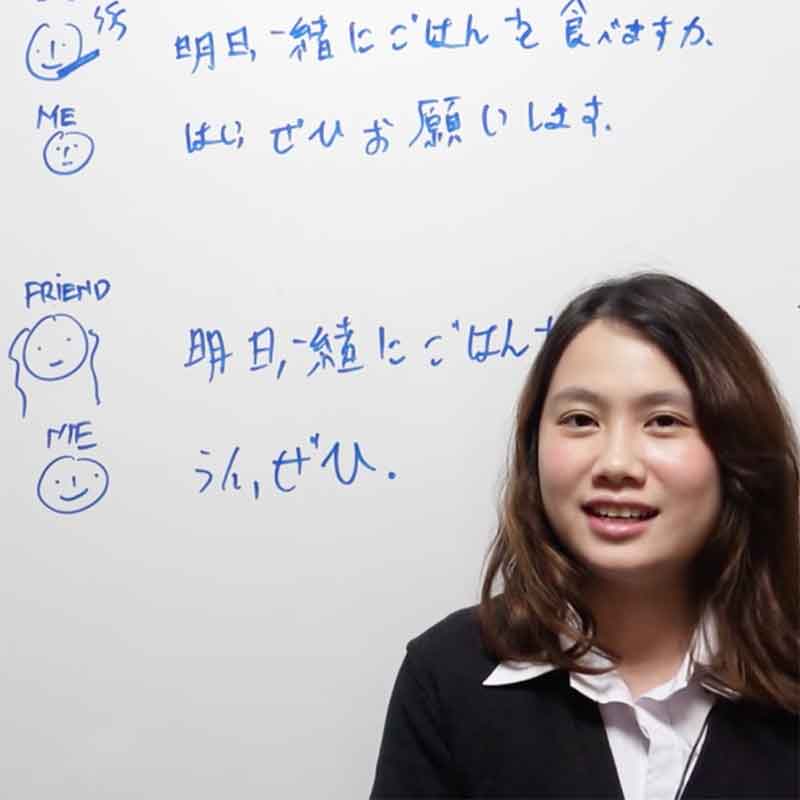 明日、一緒にごはんを食べますか。
ME
はい、ぜひお願いします。
FRIEND
明日、一緒にごはん
ME
うん、ぜひ.